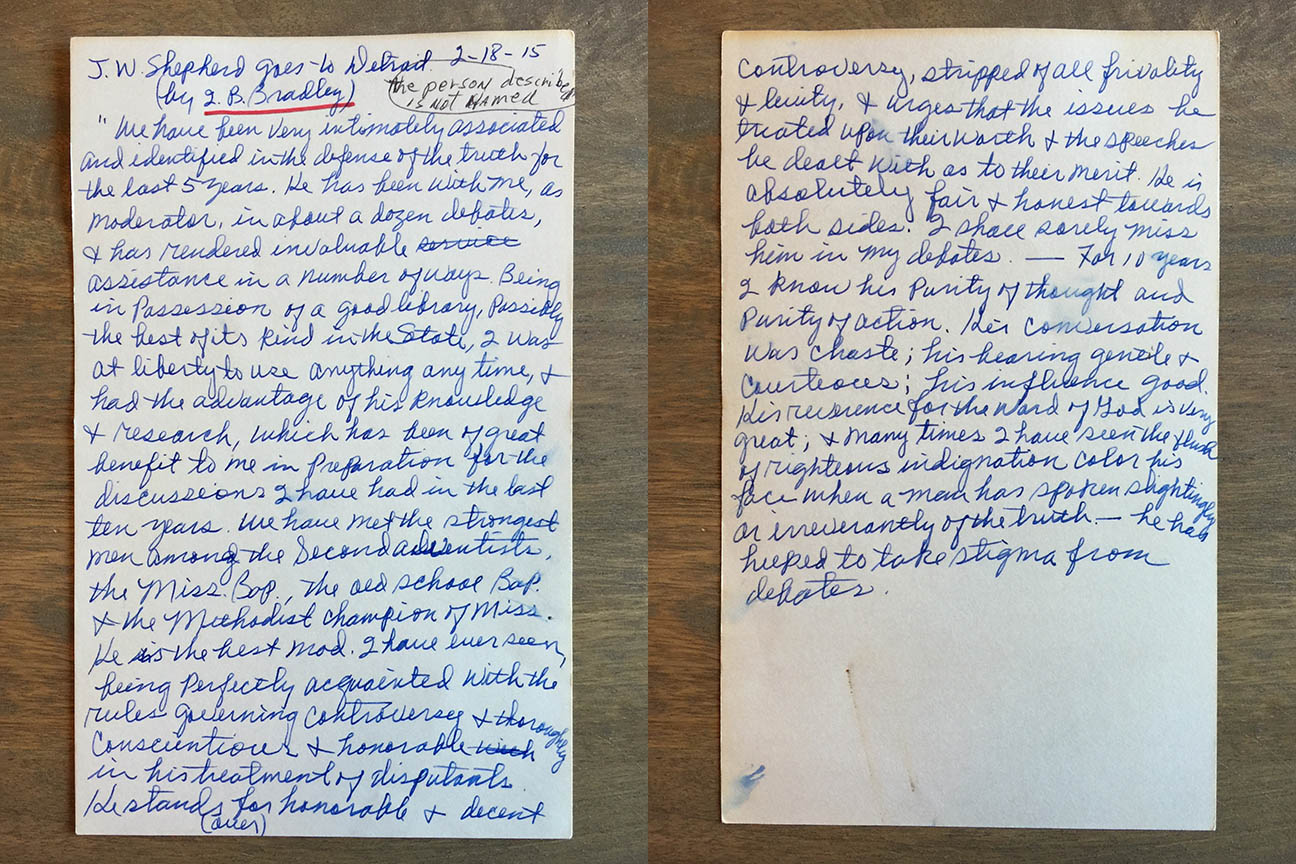 J. W. Shepherd goes to Detroit 2-18-15
(by I. B. Bradley)
the person described
is not named
"We have been very intimately associated
and identified in the defense of the truth for
the last 5 years. He has been with me, as
moderator, in about a dozen debates,
& has rendered invaluable service
assistance in a number of ways. Being
in possession of a good library, possibly
the best of its kind in the State, I was
at liberty to use anything any time, &
had the advantage of his knowledge
& research, which has been of great
benefit to me in preparation for the
discussions I have had in the last
ten years. We have met the strongest
men among the Second adventists,
the Miss. Bap., the old school Bap.
& the Methodist champion of Miss.
He is the best mod. I have ever seen,
being perfectly acquainted with the
rules governing controversey & thoroughly
conscientious & honorable with
in his treatment of disputants.
He stands for honorable & decent
(over)
controversy, stripped of all frivality
& levity, & urges that the issues be
treated upon their worth & the speeches
be dealt with as to their merit. He is
absolutely fair & honest towards
both sides. I shall sorely miss
him in my debates. — For 10 years
I know his purity of thought and
purity of action. His conversation
was chaste; his bearing gentle &
courteous; his influence good.
His reverence for the word of God is very
great; & many times I have seen the flush
of righteous indignation color his
face when a man has spoken slightingly
or irreverantly of the truth — he has
helped to take stigma from
debates.